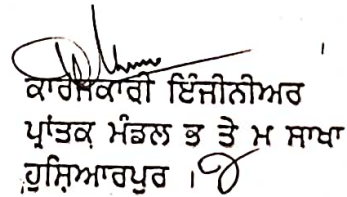 ਕਾਰਜਕਾਰੀ ਇੰਜੀਨੀਅਰ
ਪ੍ਰਾਂਤਕ ਮੰਡਲ ਭ ਤੇ ਮ ਸਾਖਾ
ਹੁਸ਼ਿਆਰਪੁਰ ।